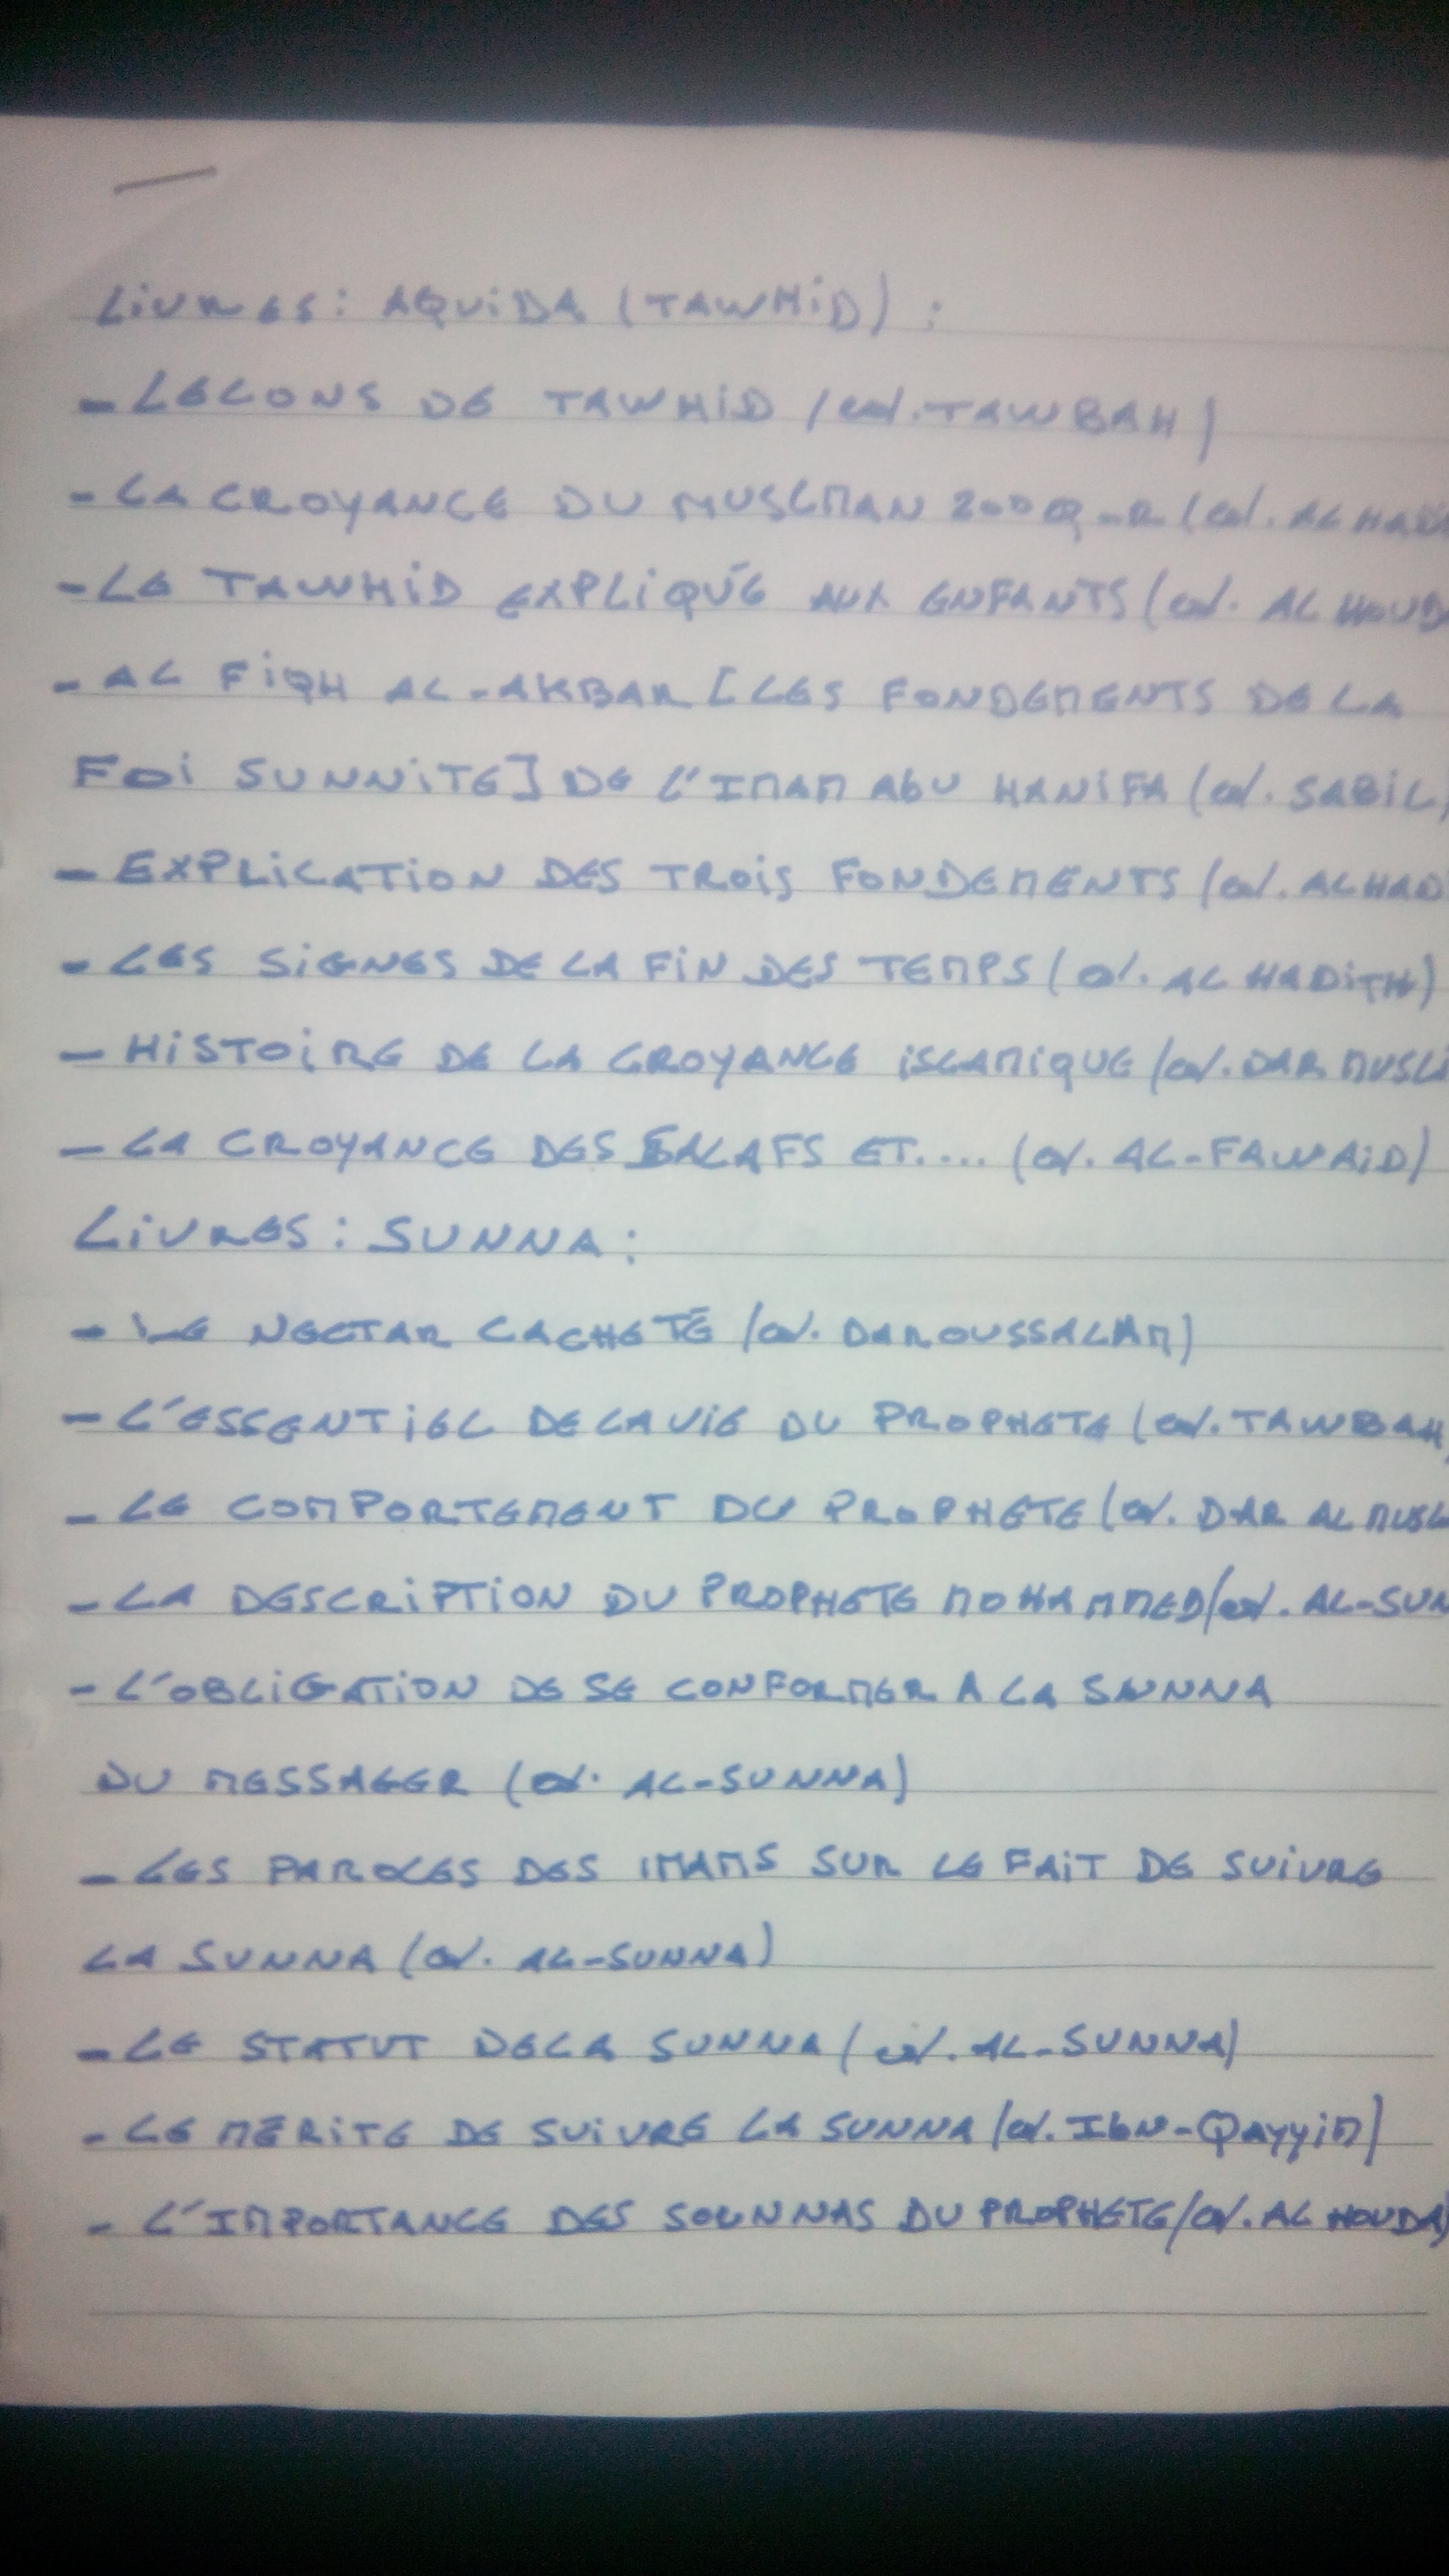 LIVRES : AQUIDA (TAWHID) :
- LECONS DE TAWHID (ed. TAWBAH)
- LA CROYANCE DU MUSLMAN 200 Q-R (ed. AL HADI
- LE TAWHID EXPLIQUÉ AUX ENFANTS (ed. AL HOUD
- AL FIQH AL-AKBAR [LES FONDEMENTS DE LA
FOI SUNNITE] DE L'IMAM ABU HANIFA (ed. SABIL)
- EXPLICATION DES TROIS FONDEMENTS (ed. AL HADI
- LES SIGNES DE LA FIN DES TEMPS (ed. AL HADITH)
- HISTOIRE DE LA CROYANCE ISLAMIQUE (ed. DAR MUSLI
- LA CROYANCE DES SALAFS ET.... (ed. AL-FAWAID)
LIVRES : SUNNA :
- LE NECTAR CACHETÉ (ed. DAROUSSALAM)
- L'ESSENTIEL DE LA VIE DU PROPHETE (ed. TAWBAH)
- LE COMPORTEMENT DU PROPHETE (ed. DAR AL MUSL
- LA DESCRIPTION DU PROPHETE MOHAMMED (ed. AL-SUN
- L'OBLIGATION DE SE CONFORMER A LA SUNNA
DU MESSAGER (ed. AL-SUNNA)
- LES PAROLES DES IMAMS SUR LE FAIT DE SUIVRE
LA SUNNA (ed. AL-SUNNA)
- LE STATUT DE LA SUNNA (ed. AL-SUNNA)
- LE MÉRITE DE SUIVRE LA SUNNA (ed. IbN-QAyyiM)
- L'IMPORTANCE DES SOUNNAS DU PROPHETE (ed. AL HOUDA)